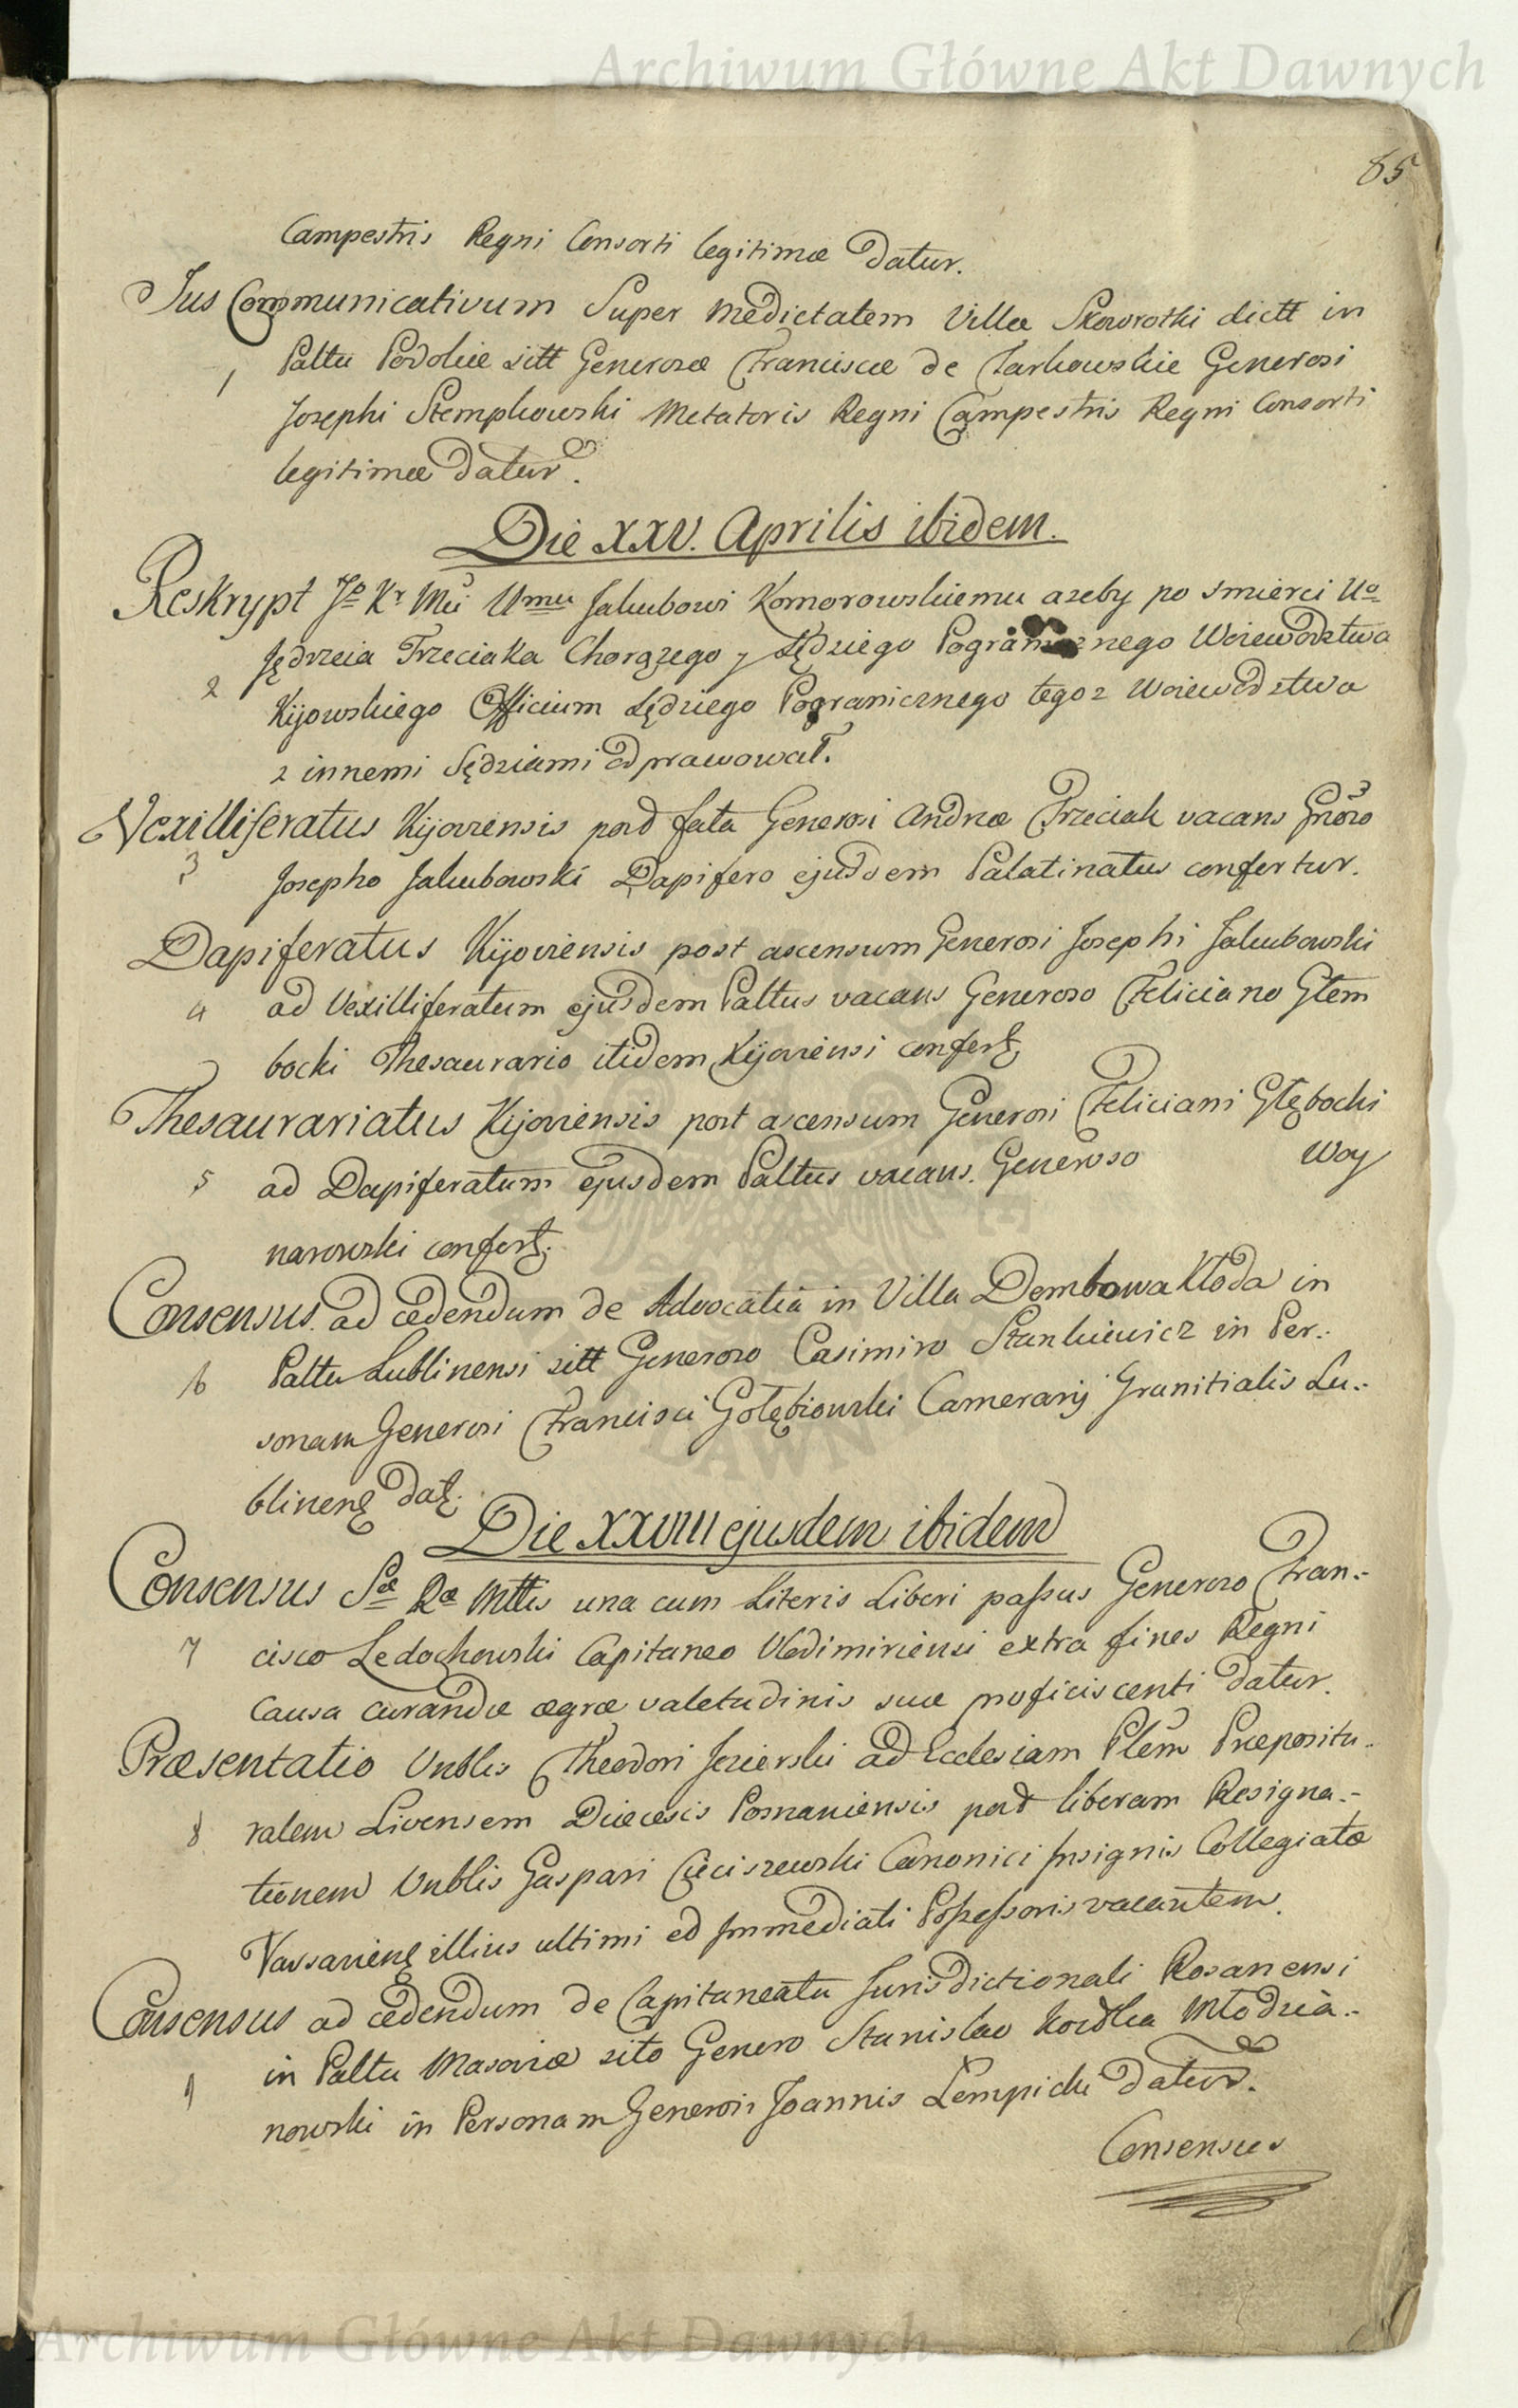 Archiwum Główne Akt Dawnych
85
Campestris Regni Consorti legitimæ Datur.
Jus Communicativum Super Medietatem Villæ Skowrotki dictt in
1 Palttu Podoliæ sitt Generosæ Franciscæ de Tarkowskie Generosi
Josephi Stempkowski Metatoris Regni Campestris Regni Consorti
legitimæ Datur.
Die XXV. Aprilis ibidem.
Reskrypt Jo Kr Mci Umu Jakubowi Komorowskiemu azeby po smierci Uo
Jędrzeia Trzeciaka Chorązego y Sędziego Pogranicznego Woiewodztwa
2 Kijowskiego Officium Sędziego Pogranicznego tegoz Woiewodztwa
z innemi Sędziami odprawował.
Vexilliferatus Kijoviensis post fata Generosi Andreæ Trzeciak vacans Gnoso
3 Josepho Jakubowski Dapifero ejusdem Palatinatus confertur.
Dapiferatus Kijoviensis post ascensum Generosi Josephi Jakubowski
4 ad Vexilliferatum ejusdem Palttus vacans Generoso Feliciano Głem
bocki Thesaurario itidem Kijoviensi confert
Thesaurariatus Kijoviensis post ascensum Generosi Feliciani Głębocki
5 ad Dapiferatum ejusdem Palttus vacans. Generoso Woy
narowski confert.
Consensus ad cedendum de Advocatia in Villa Dembowa Kłoda in
6 Palttu Lublinensi sitt Generoso Casimiro Stankiewicz in Per-
sonam Generosi Francisci Gołębiowski Camerarij Granitialis Lu-
blinens dat.
Die XXVIII ejusdem ibidem
Consensus Sæ Ræ Mttis una cum Literis Liberi passus Generoso Fran-
7 cisco Ledochowski Capitaneo Vlodimiriensi extra fines Regni
causa curandæ ægræ valetudinis suæ proficiscenti datur.
Præsentatio Vnblis Theodori Jezierski ad Ecclesiam Plem Præpositu-
8 ralem Livensem Diæcesis Posnaniensis post liberam Resigna-
tionem Vnblis Gaspari Cieciszewski Canonici Insignis Collegiatæ
Varsaviens illius ultimi ed Immediati Possessoris vacantem.
Consensus ad cedendum de Capitaneatu Jurisdictionali Rosanensi
9 in Palttu Masoviæ sito Genero Stanislao Kostka Młodzia-
nowski in Personam Generosi Joannis Lempicki Datur.
Consensus
Archiwum Główne Akt Dawnych